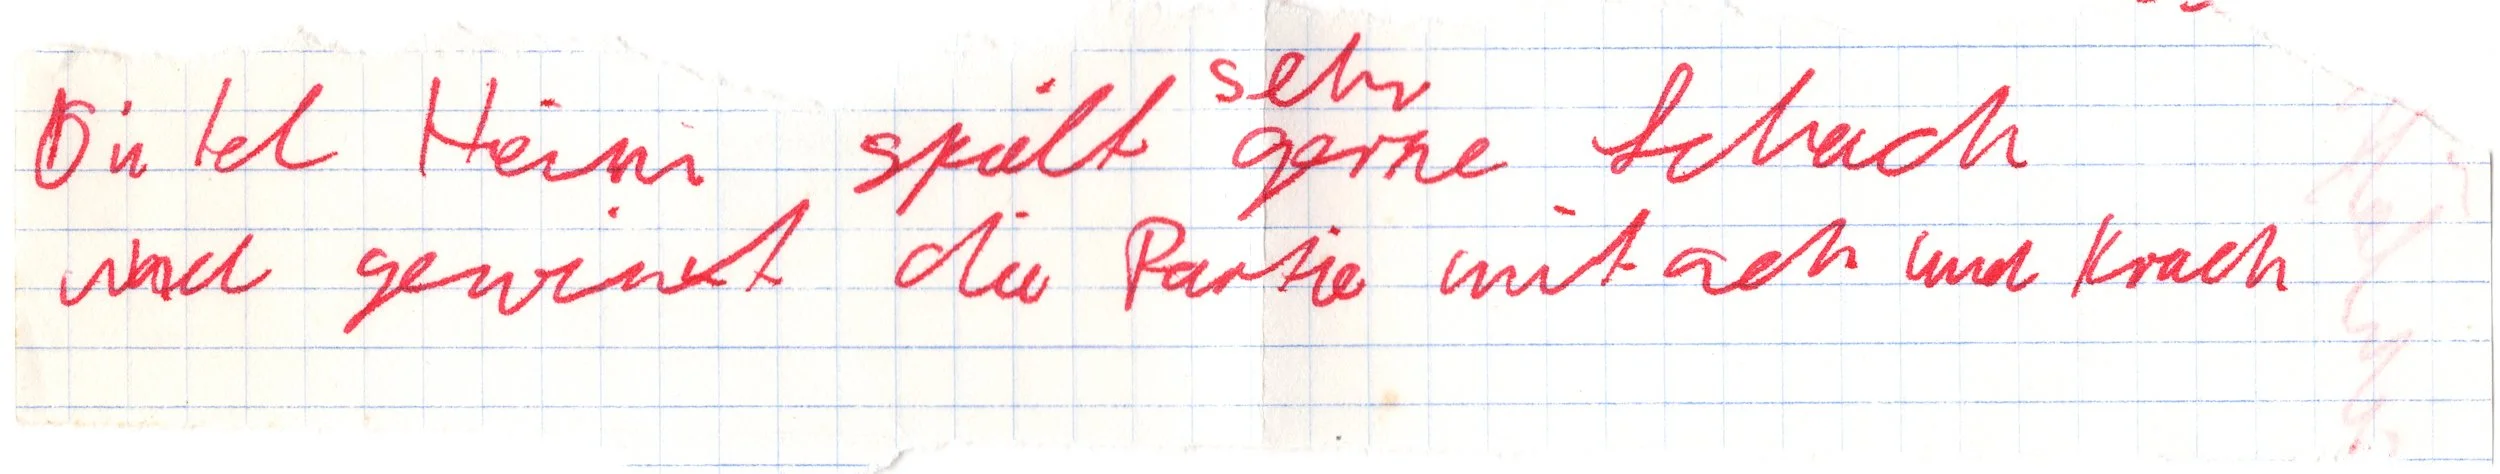 Onkel Heini spielt sehr gerne Schach
und gewinnt die Partie mit ach und Krach